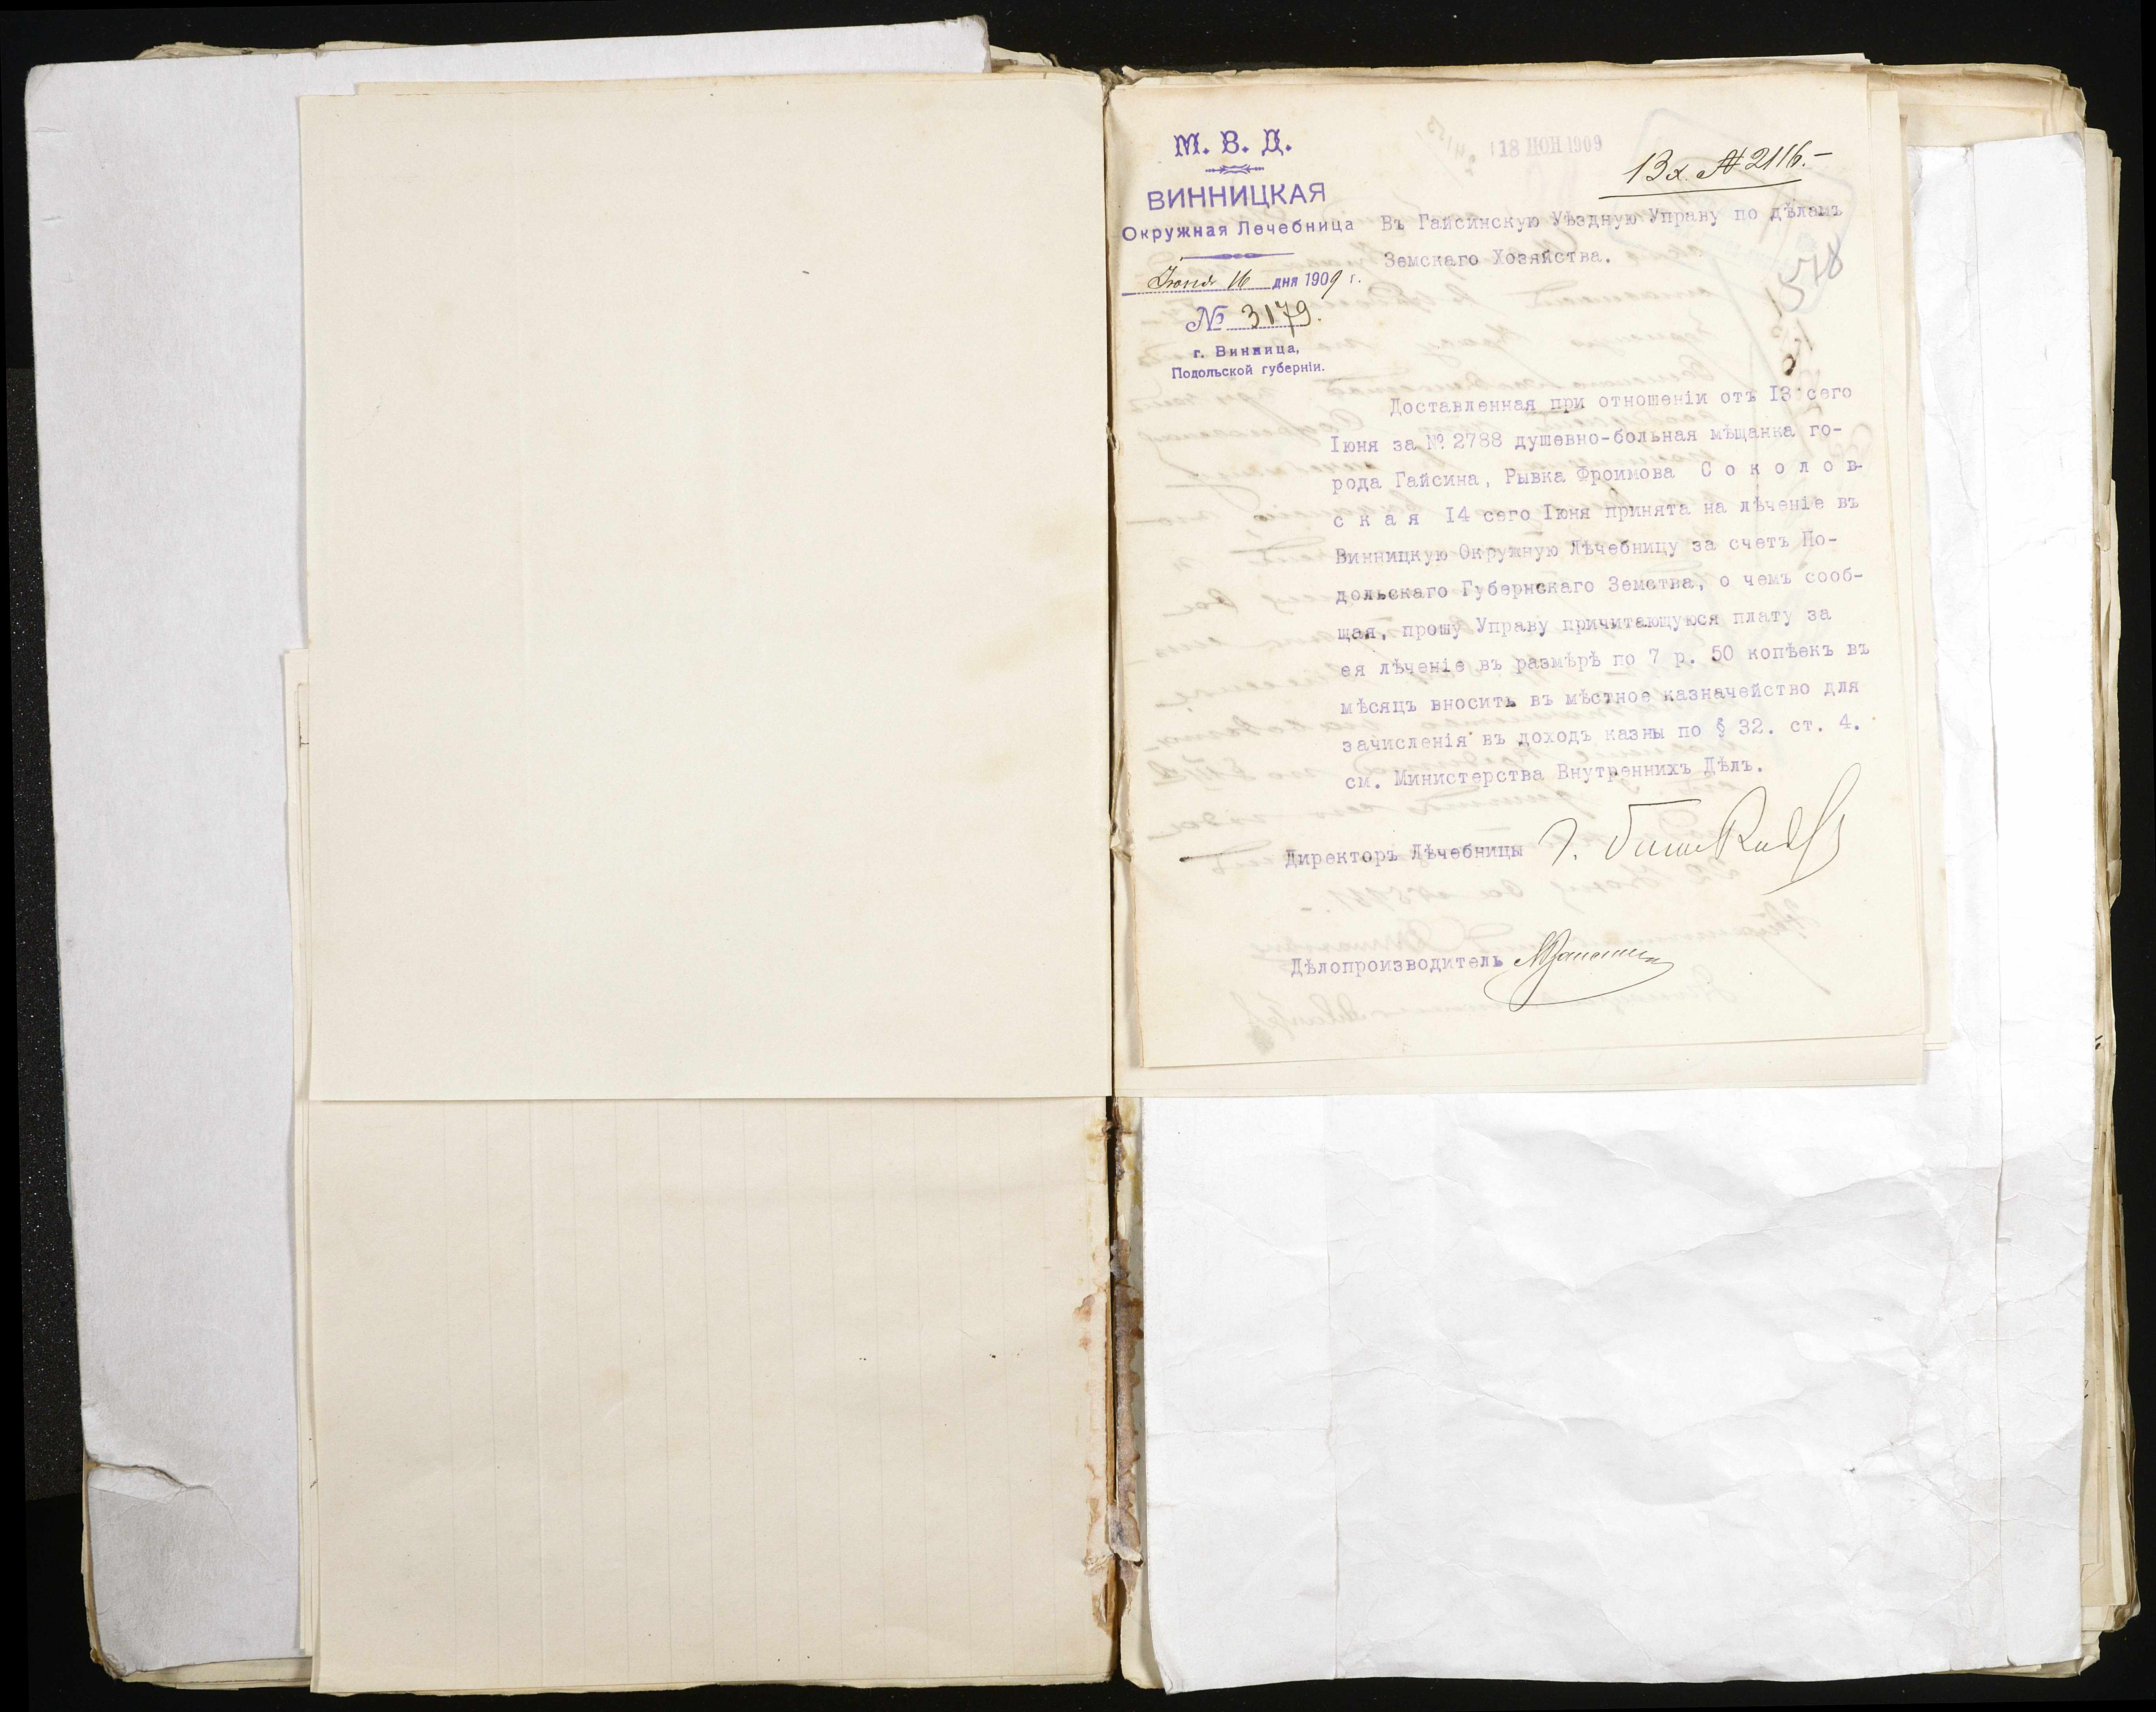 М. В. Д.
ВИННИЦКАЯ
Окружная Лечебница
Іюня 16 дня 1909 г.
№ 3179.
г. Винница,
Подольской губерніи.
18 ІЮН 1909
Вх. № 2116.-
Въ Гайсинскую Уѣздную Управу по дѣламъ
Земскаго Хозяйства.
Доставленная при отношеніи отъ 13 сего
Іюня за № 2788 душевно-больная мѣщанка го-
рода Гайсина, Рывка Фроимова С о к о л о в-
с к а я 14 сего Іюня принята на лѣченіе въ
Винницкую Окружную Лѣчебницу за счетъ По-
дольскаго Губернскаго Земства, о чемъ сооб-
щая, прошу Управу причитающуюся плату за
ея лѣченіе въ размѣрѣ по 7 р. 50 копѣекъ въ
мѣсяцъ вносить въ мѣстное казначейство для
зачисленія въ доходъ казны по § 32. ст. 4.
см. Министерства Внутреннихъ Дѣлъ.
Директоръ Лѣчебницы
Дѣлопроизводитель